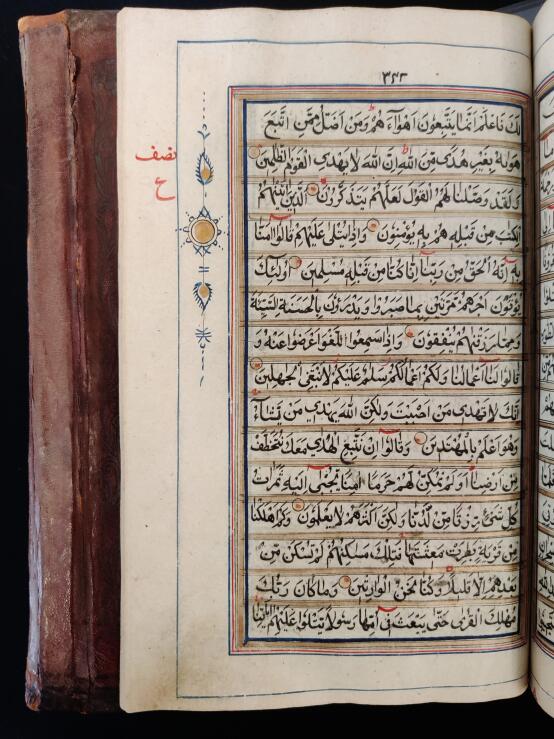 ٣٤٢
لك فاعلم انما يتبعون اهواءهم ومن اضل ممن اتبع
هوىه بغير هدى من الله ان الله لا يهدى القوم الظلمين
ولقد وصلنا لهم القول لعلهم يتذكرون الذين اتينهم
الكتب من قبله هم به يؤمنون واذا يتلى عليهم قالوا امنا
به انه الحق من ربنا انا كنا من قبله مسلمين اولئك
يؤتون اجرهم مرتين بما صبروا ويدرؤن بالحسنة السيئة
ومما رزقنهم ينفقون واذا سمعوا اللغو اعرضوا عنه و
قالوا لنا اعمالنا ولكم اعمالكم سلم عليكم لا نبتغى الجهلين
انك لا تهدى من احببت ولكن الله يهدى من يشاء
وهو اعلم بالمهتدين وقالوا ان نتبع الهدى معك نتخطف
من ارضنا اولم نمكن لهم حرما امنا يجبى اليه ثمرات
كل شىء رزقا من لدنا ولكن اكثرهم لا يعلمون وكم اهلكنا
من قرية بطرت معيشتها فتلك مسكنهم لم تسكن من
بعدهم الا قليلا وكنا نحن الوارثين وما كان ربك
مهلك القرى حتى يبعث فى امها رسولا يتلوا عليهم ايتنا
نصف
ح